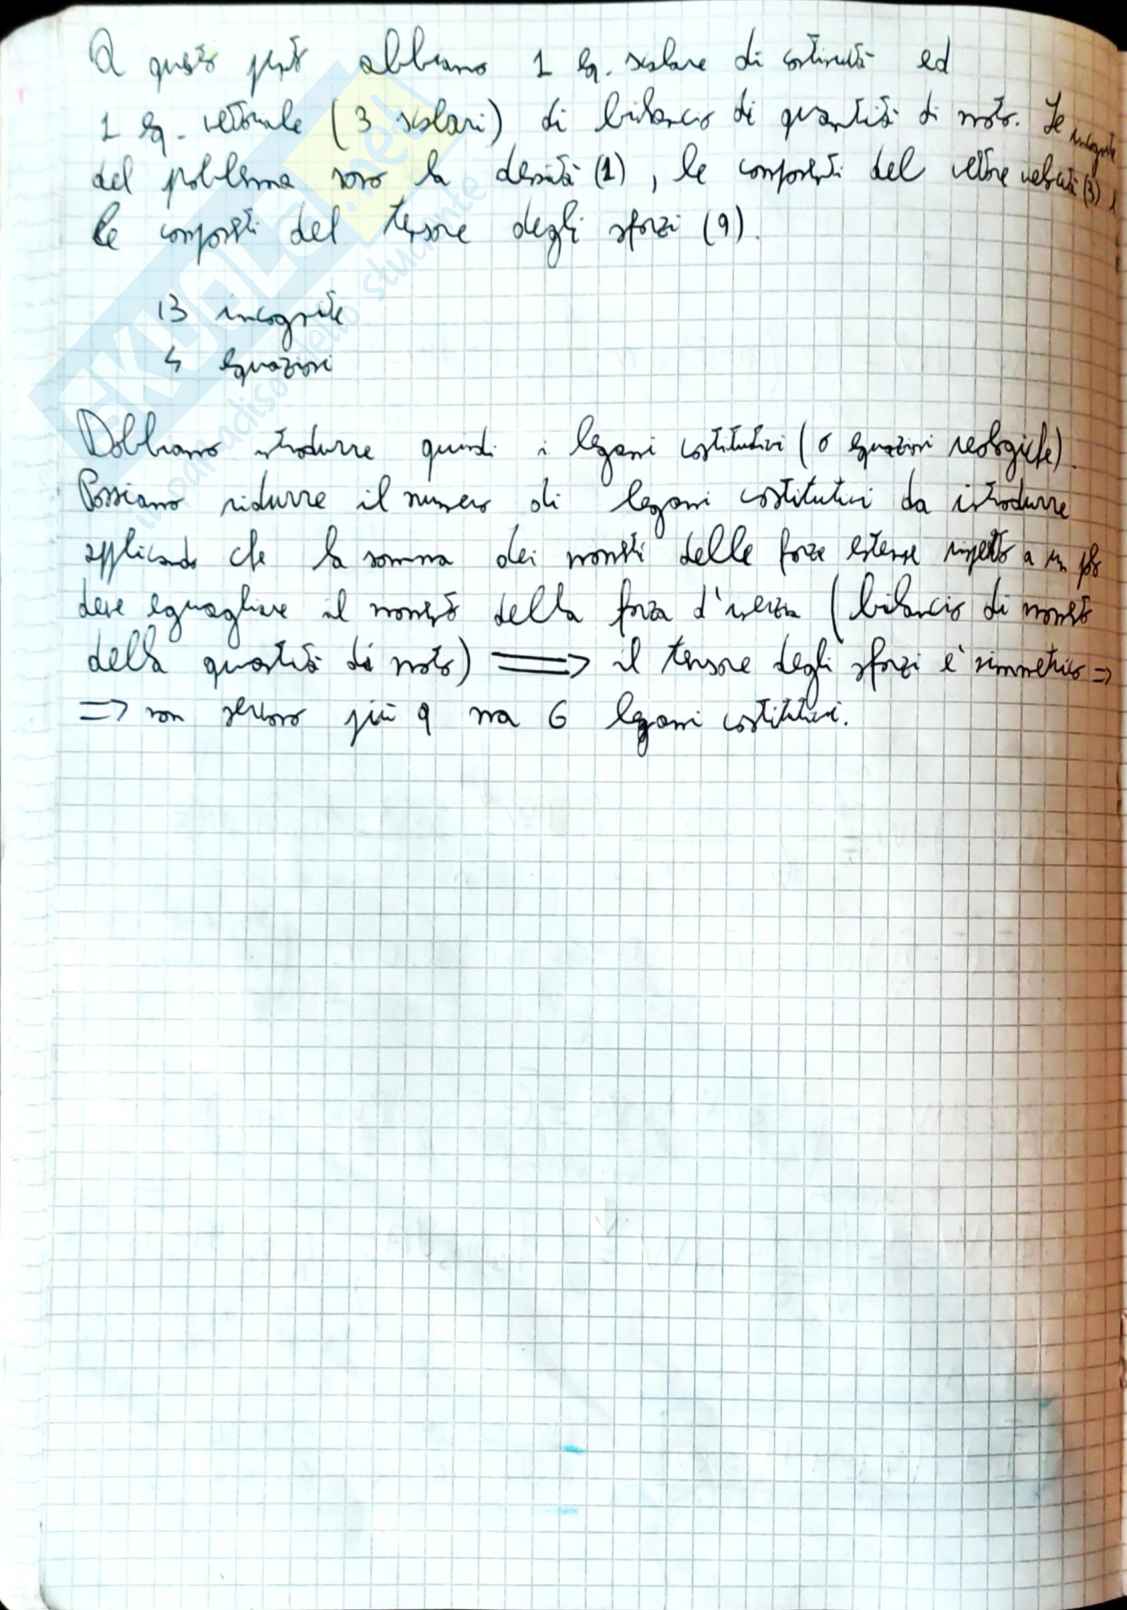 A questo punto abbiamo 1 eq. scalare di continuità ed
1 eq. vettoriale (3 scalari) di bilancio di quantità di moto. Le incognite
del problema sono la densità (1), le componenti del vettore velocità (3),
le componenti del tensore degli sforzi (9).
13 incognite
4 equazioni
Dobbiamo introdurre quindi i legami costitutivi (o equazioni reologiche).
Possiamo ridurre il numero di legami costitutivi da introdurre
applicando che la somma dei momenti delle forze esterne rispetto a un polo
deve eguagliare il momento della forza d'inerzia (bilancio di momento
della quantità di moto) ⟹ il tensore degli sforzi è simmetrico ⇒
⇒ non servono più 9 ma 6 legami costitutivi.
SKUOLA.net
il paradiso dello studente